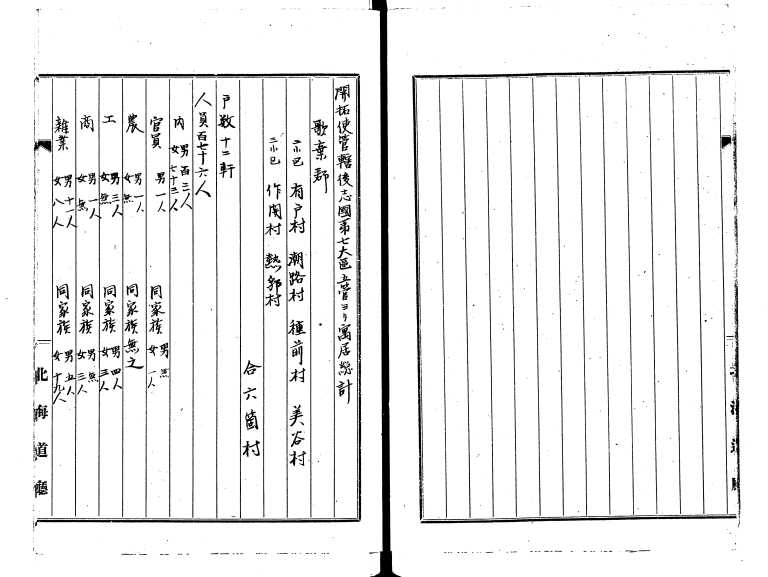 開拓使管轄後志國第七大區五管ヨリ寓居總計
歌棄郡
一小区 有戸村 潮路村 種前村 美谷村
二小区 作開村 熱郛村
合六箇村
戸数十二軒
人員百七十六人
内 男百三人
女七十三人
官員 男一人 同家族 男無
女一人
農 男一人 同家族無之
女無
工 男三人 同家族 男四人
女無 女三人
商 男一人 同家族 男無
女無 女三人
雜業 男十一人 同家族 男五人
女八人 女十九人
北海道廳